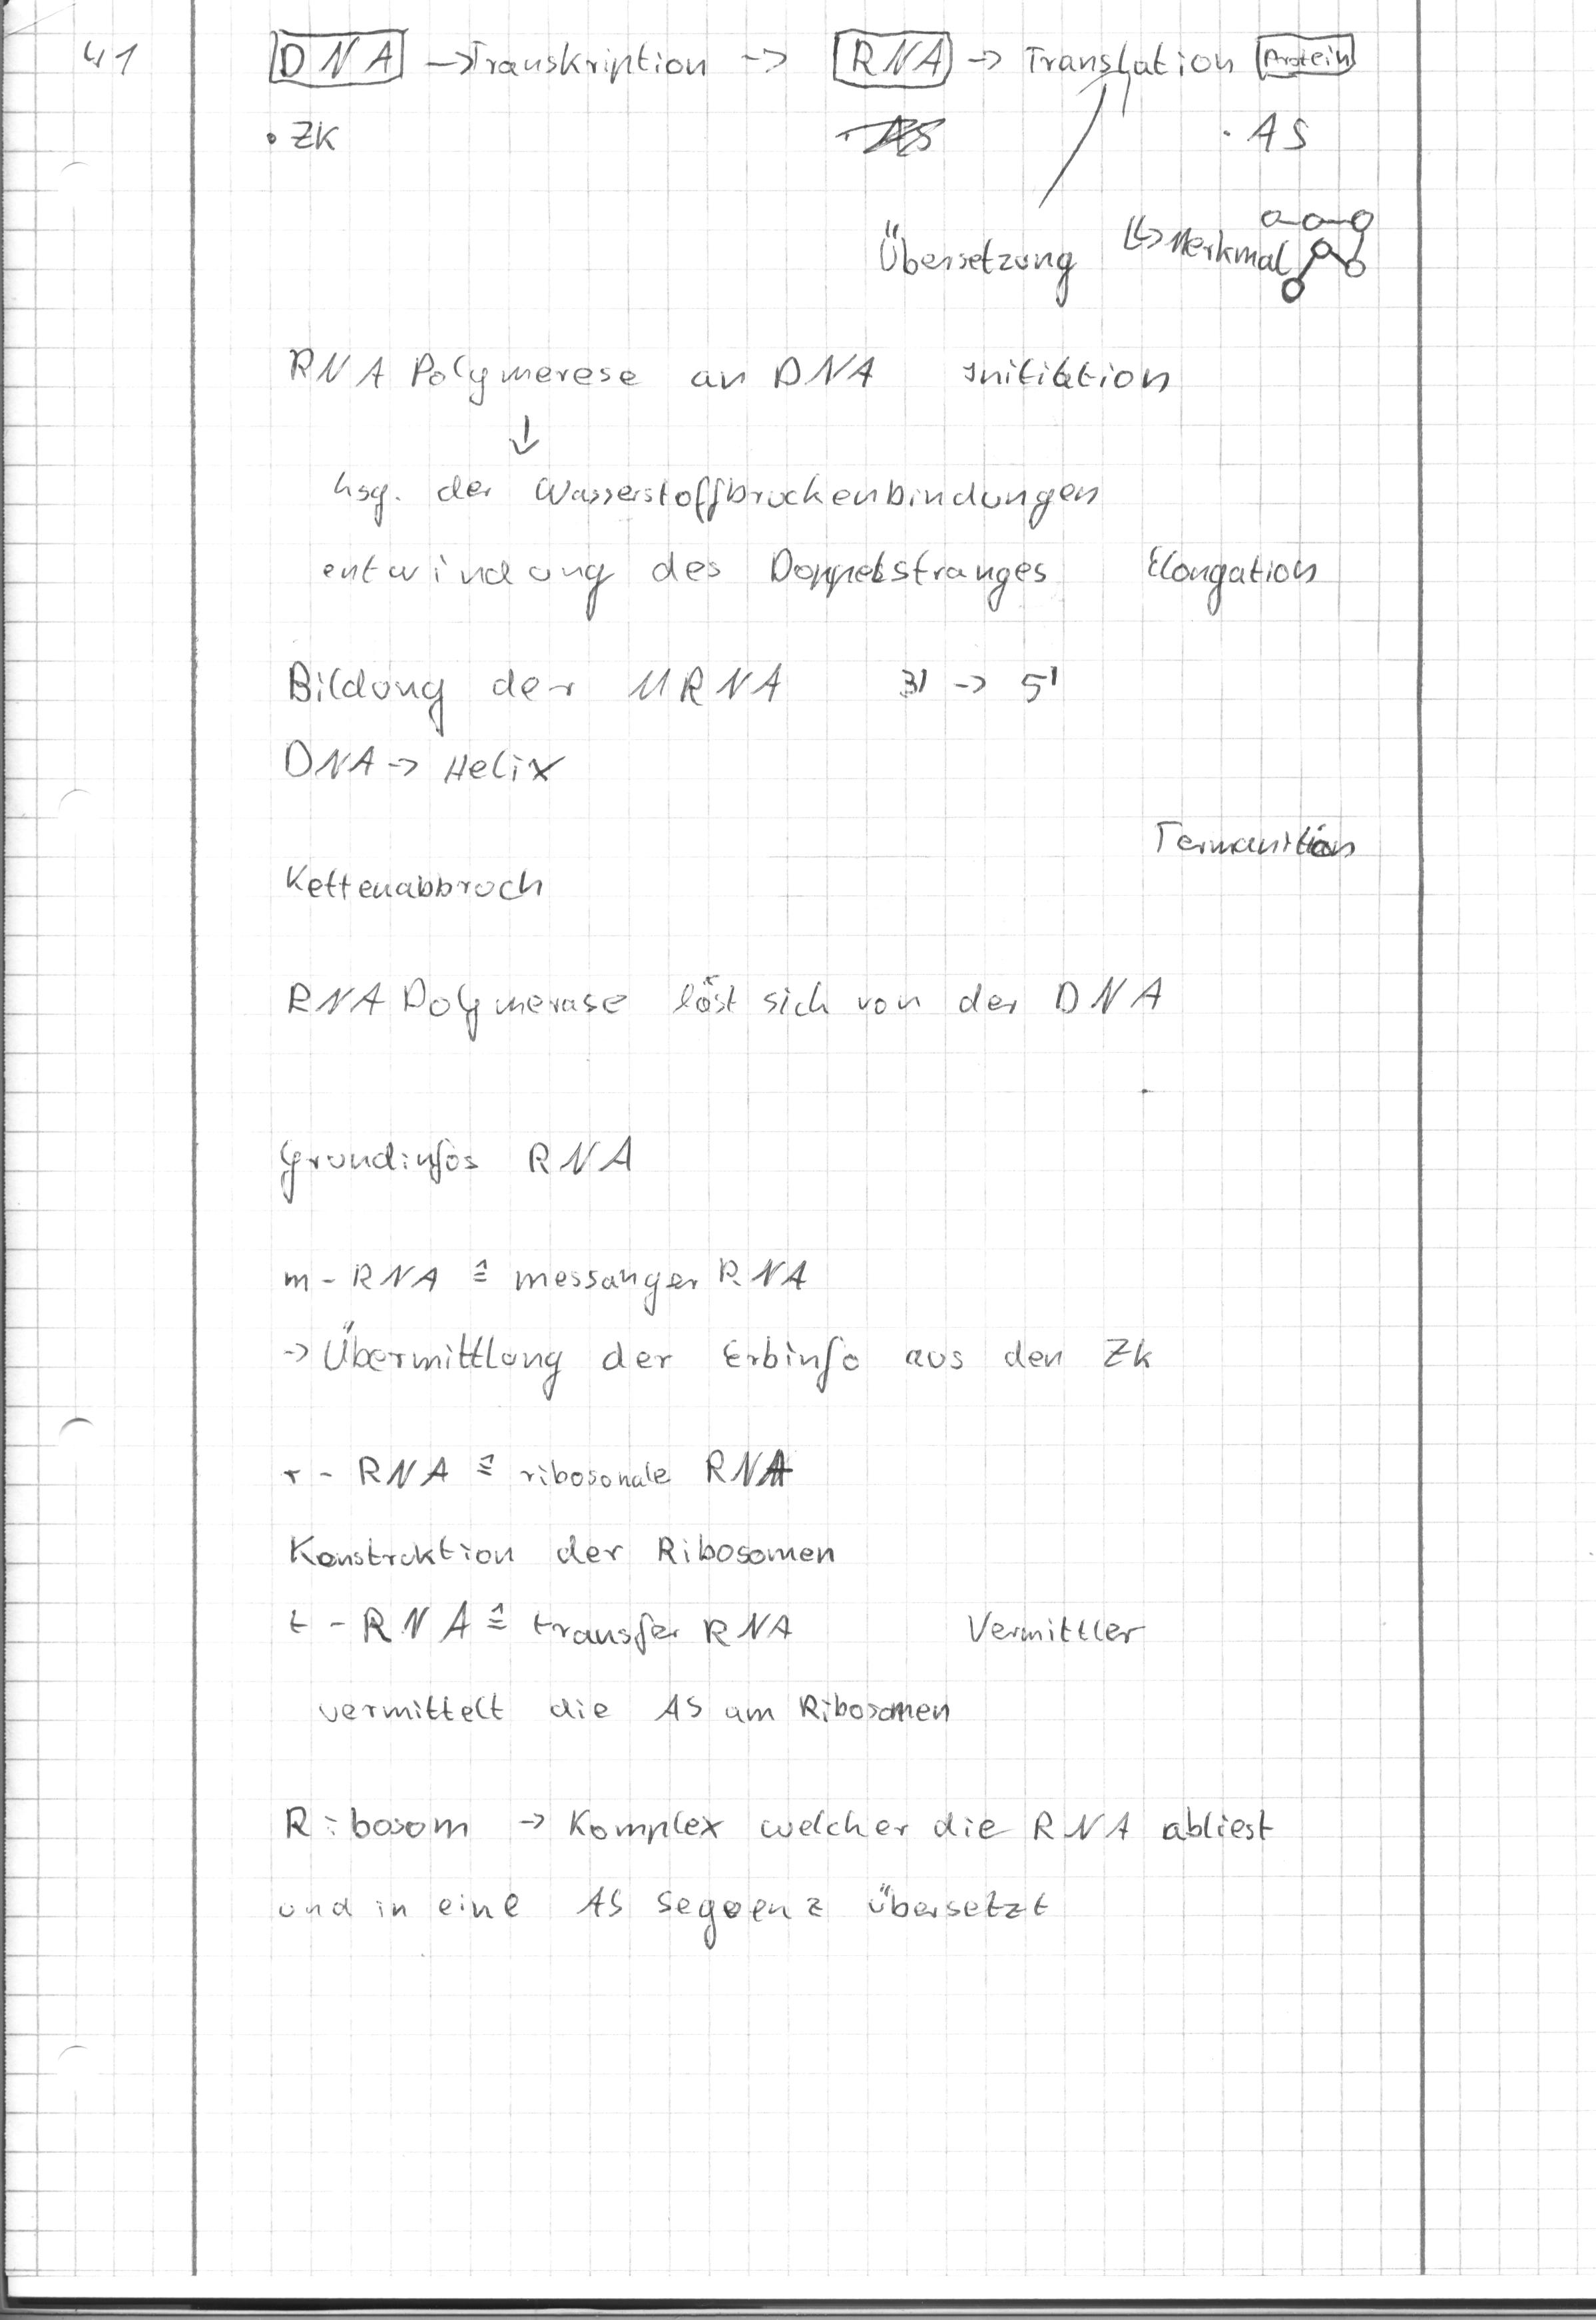 41 DNA → Transkription → RNA → Translation Protein
• ZK · AS
Übersetzung ↳ Merkmal
RNA Polymerese an DNA Initiation
↓
der Wasserstoffbruckenbindungen
entwindung des Doppelstranges Elongation
Bildung der MRNA 3' → 5'
DNA → Helix
Termanition
Kettenabbruch
RNA Polymerase löst sich von der DNA
Grundinfos RNA
m - RNA ≙ messanger RNA
→ Übermittlung der Erbinfo aus den ZK
r - RNA ≙ ribosonale RNA
Konstrktion der Ribosomen
t - RNA ≙ transfer RNA Vermittler
vermittelt die AS am Ribosomen
Ribosom → Komplex welcher die RNA abliest
und in eine AS Seqeenz übersetzt